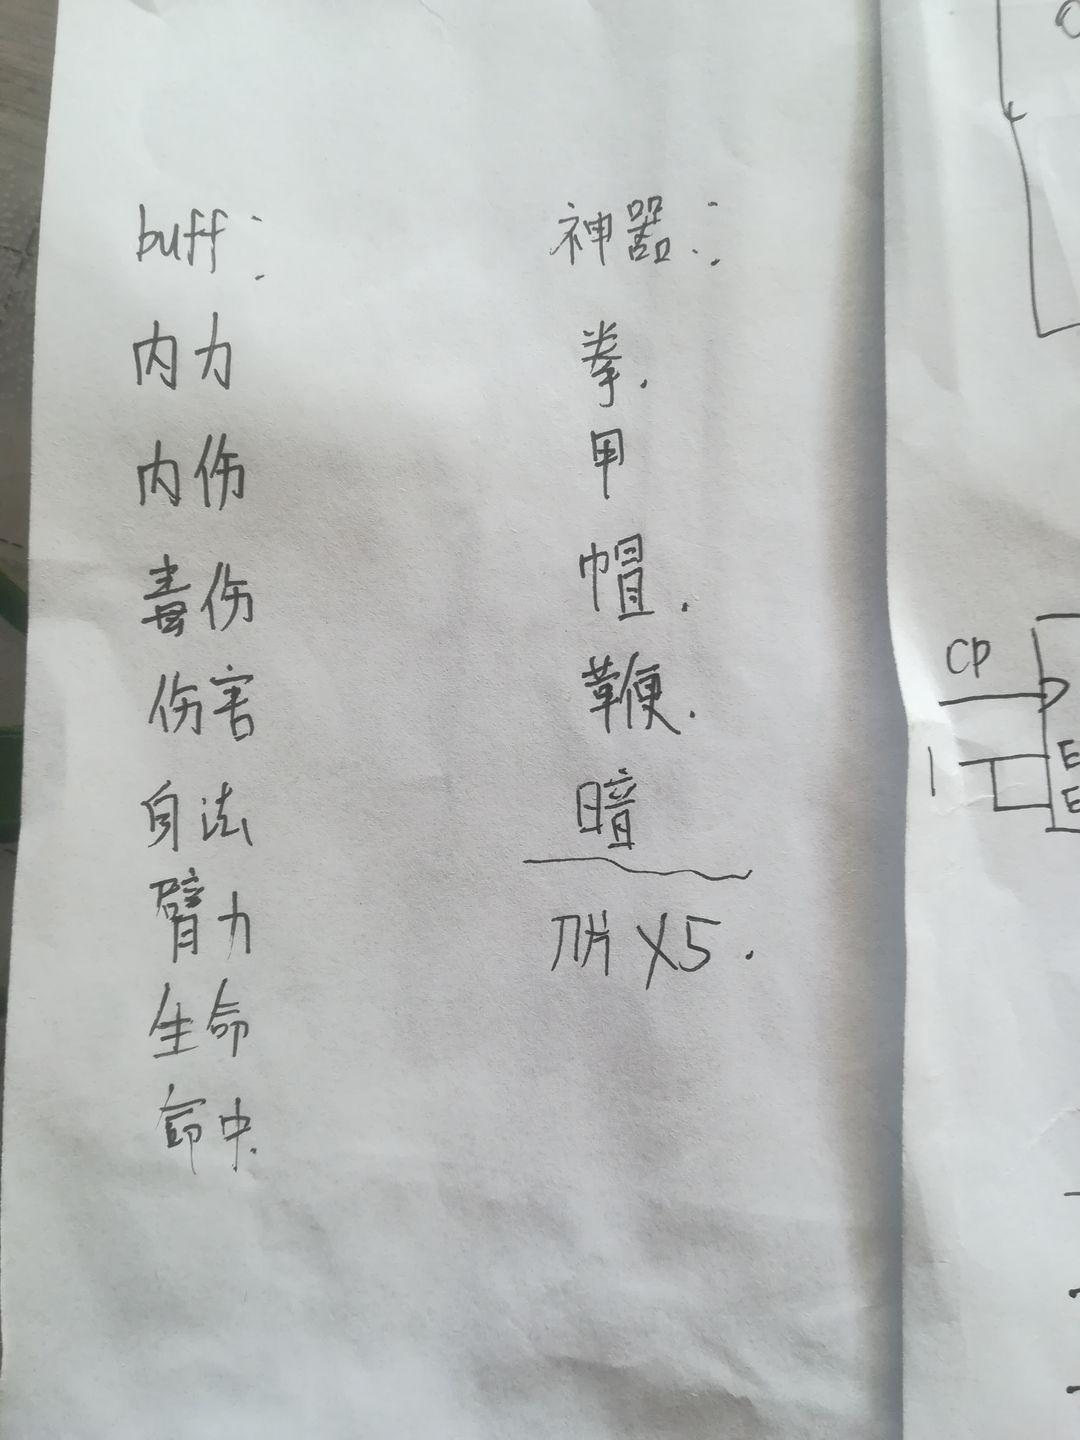 buff:
内力
内伤
毒伤
伤害
身法
臂力
生命
命中.
神器:
拳.
甲
帽.
鞭.
暗
刀片 X5.
CP
1
E
E